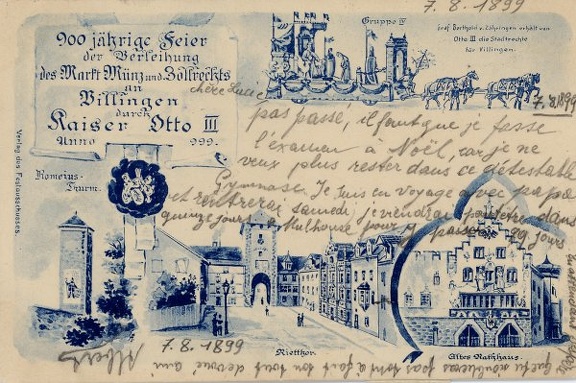 7. 8. 1899
900 jährige Feier
der Verleihung
des Markt Münz und Zollrechts
an
Villingen
durch
Kaiser Otto III
Anno 999.
Gruppe IV
Graf Berthold v. Zähringen erhält von
Otto III die Stadtrechte
für Villingen.
7. 8. 1899
chère Lucie
pas passé, il faut que je fasse
l'examen à Noël, car je ne
veux plus rester dans ce détestable
Gymnase. Je suis en voyage avec papa
et rentrerai samedi, je viendrai peut-être dans
quinze jours à Mulhouse pour
jours
Verlag des Festausschusses.
Romeius-
Thurm.
Rietthor.
Altes Rathhaus.
7. 8. 1899
Albert
pas tout à fait ton tout dévoué ami